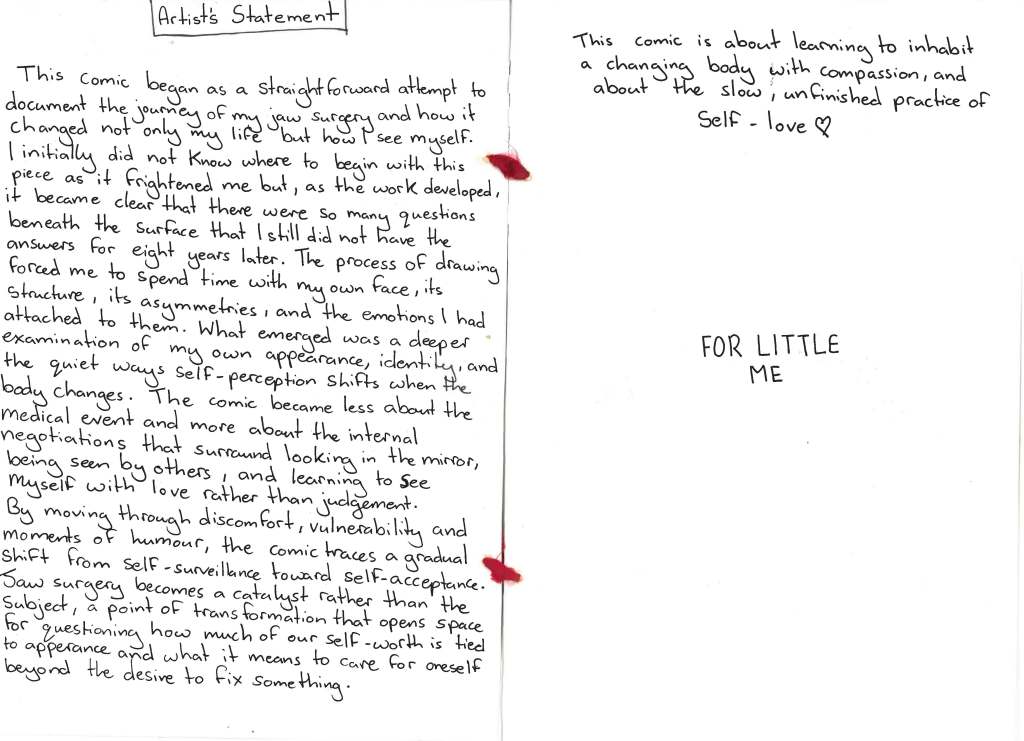 Artist's Statement
This comic began as a straightforward attempt to
document the journey of my jaw surgery and how it
changed not only my life but how I see myself.
I initially did not know where to begin with this
piece as it frightened me but, as the work developed,
it became clear that there were so many questions
beneath the surface that I still did not have the
answers for eight years later. The process of drawing
forced me to spend time with my own face, its
structure, its asymmetries, and the emotions I had
attached to them. What emerged was a deeper
examination of my own appearance, identity, and
the quiet ways self-perception shifts when the
body changes. The comic became less about the
medical event and more about the internal
negotiations that surround looking in the mirror,
being seen by others, and learning to see
myself with love rather than judgement.
By moving through discomfort, vulnerability and
moments of humour, the comic traces a gradual
shift from self-surveillance toward self-acceptance.
Jaw surgery becomes a catalyst rather than the
subject, a point of transformation that opens space
for questioning how much of our self-worth is tied
to apperance and what it means to care for oneself
beyond the desire to fix something.
This comic is about learning to inhabit
a changing body with compassion, and
about the slow, unfinished practice of
self-love ♡
FOR LITTLE
ME